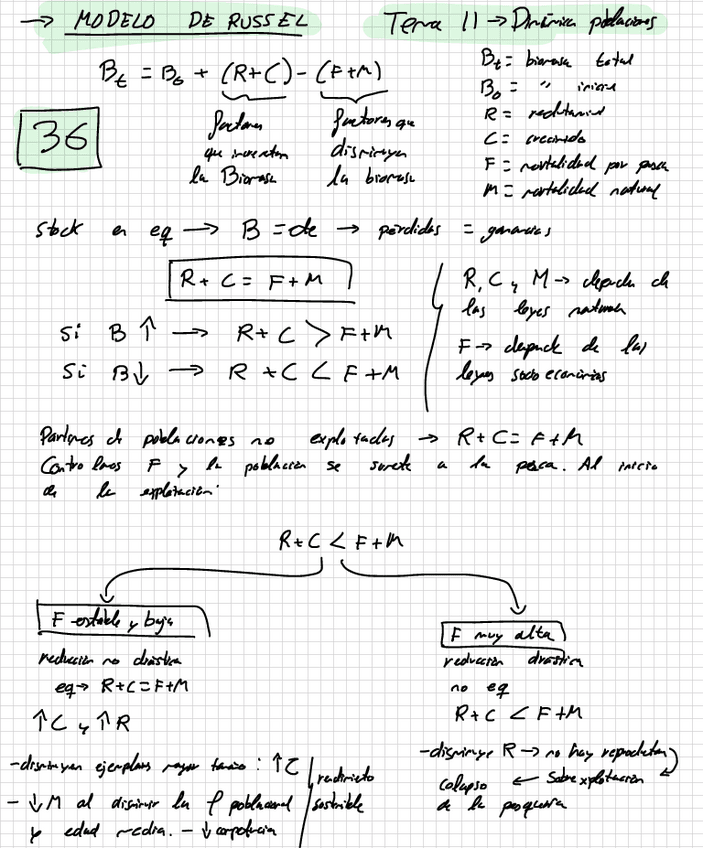 → MODELO DE RUSSEL
Tema 11 → Dinámica poblaciones
Bt = B0 + (R+C) - (F+M)
Bt = biomasa total
B0 = " inicial
R = reclutamiento
C = crecimiento
F = mortalidad por pesca
M = mortalidad natural
36
factores que incrementan la Biomasa
factores que disminuyen la biomasa
stock en eq → B = cte → pérdidas = ganancias
R + C = F + M
Si B ↑ → R + C > F + M
Si B ↓ → R + C < F + M
R, C y M → depende de
las leyes naturales
F → depende de las
leyes socioeconómicas
Partimos de poblaciones no explotadas → R + C = F + M
Controlamos F y la población se somete a la pesca. Al inicio
de la explotación:
R + C < F + M
F estable y baja
reducción no drástica
eq → R+C = F+M
↑C y ↑R
- disminuyen ejemplares mayor tamaño : ↑C
- ↓M al disminuir la ρ poblacional
y edad media. - ↓ competencia
rendimiento
sostenible
F muy alta
reducción drástica
no eq
R + C < F + M
- disminuye R → no hay reproductores
colapso ← Sobreexplotación
de la pesquería